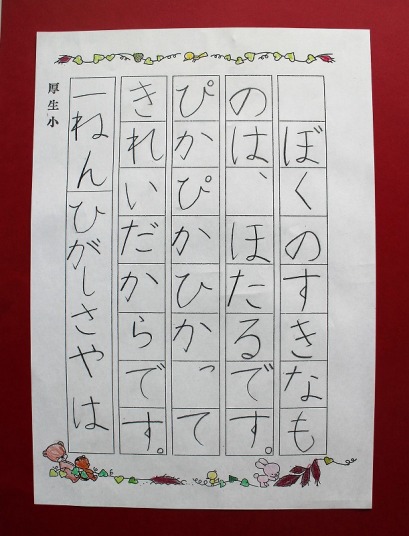 ぼくのすきなも
のは、ほたるです。
ぴかぴかひかって
きれいだからです。
一ねんひがしさやは
厚生小